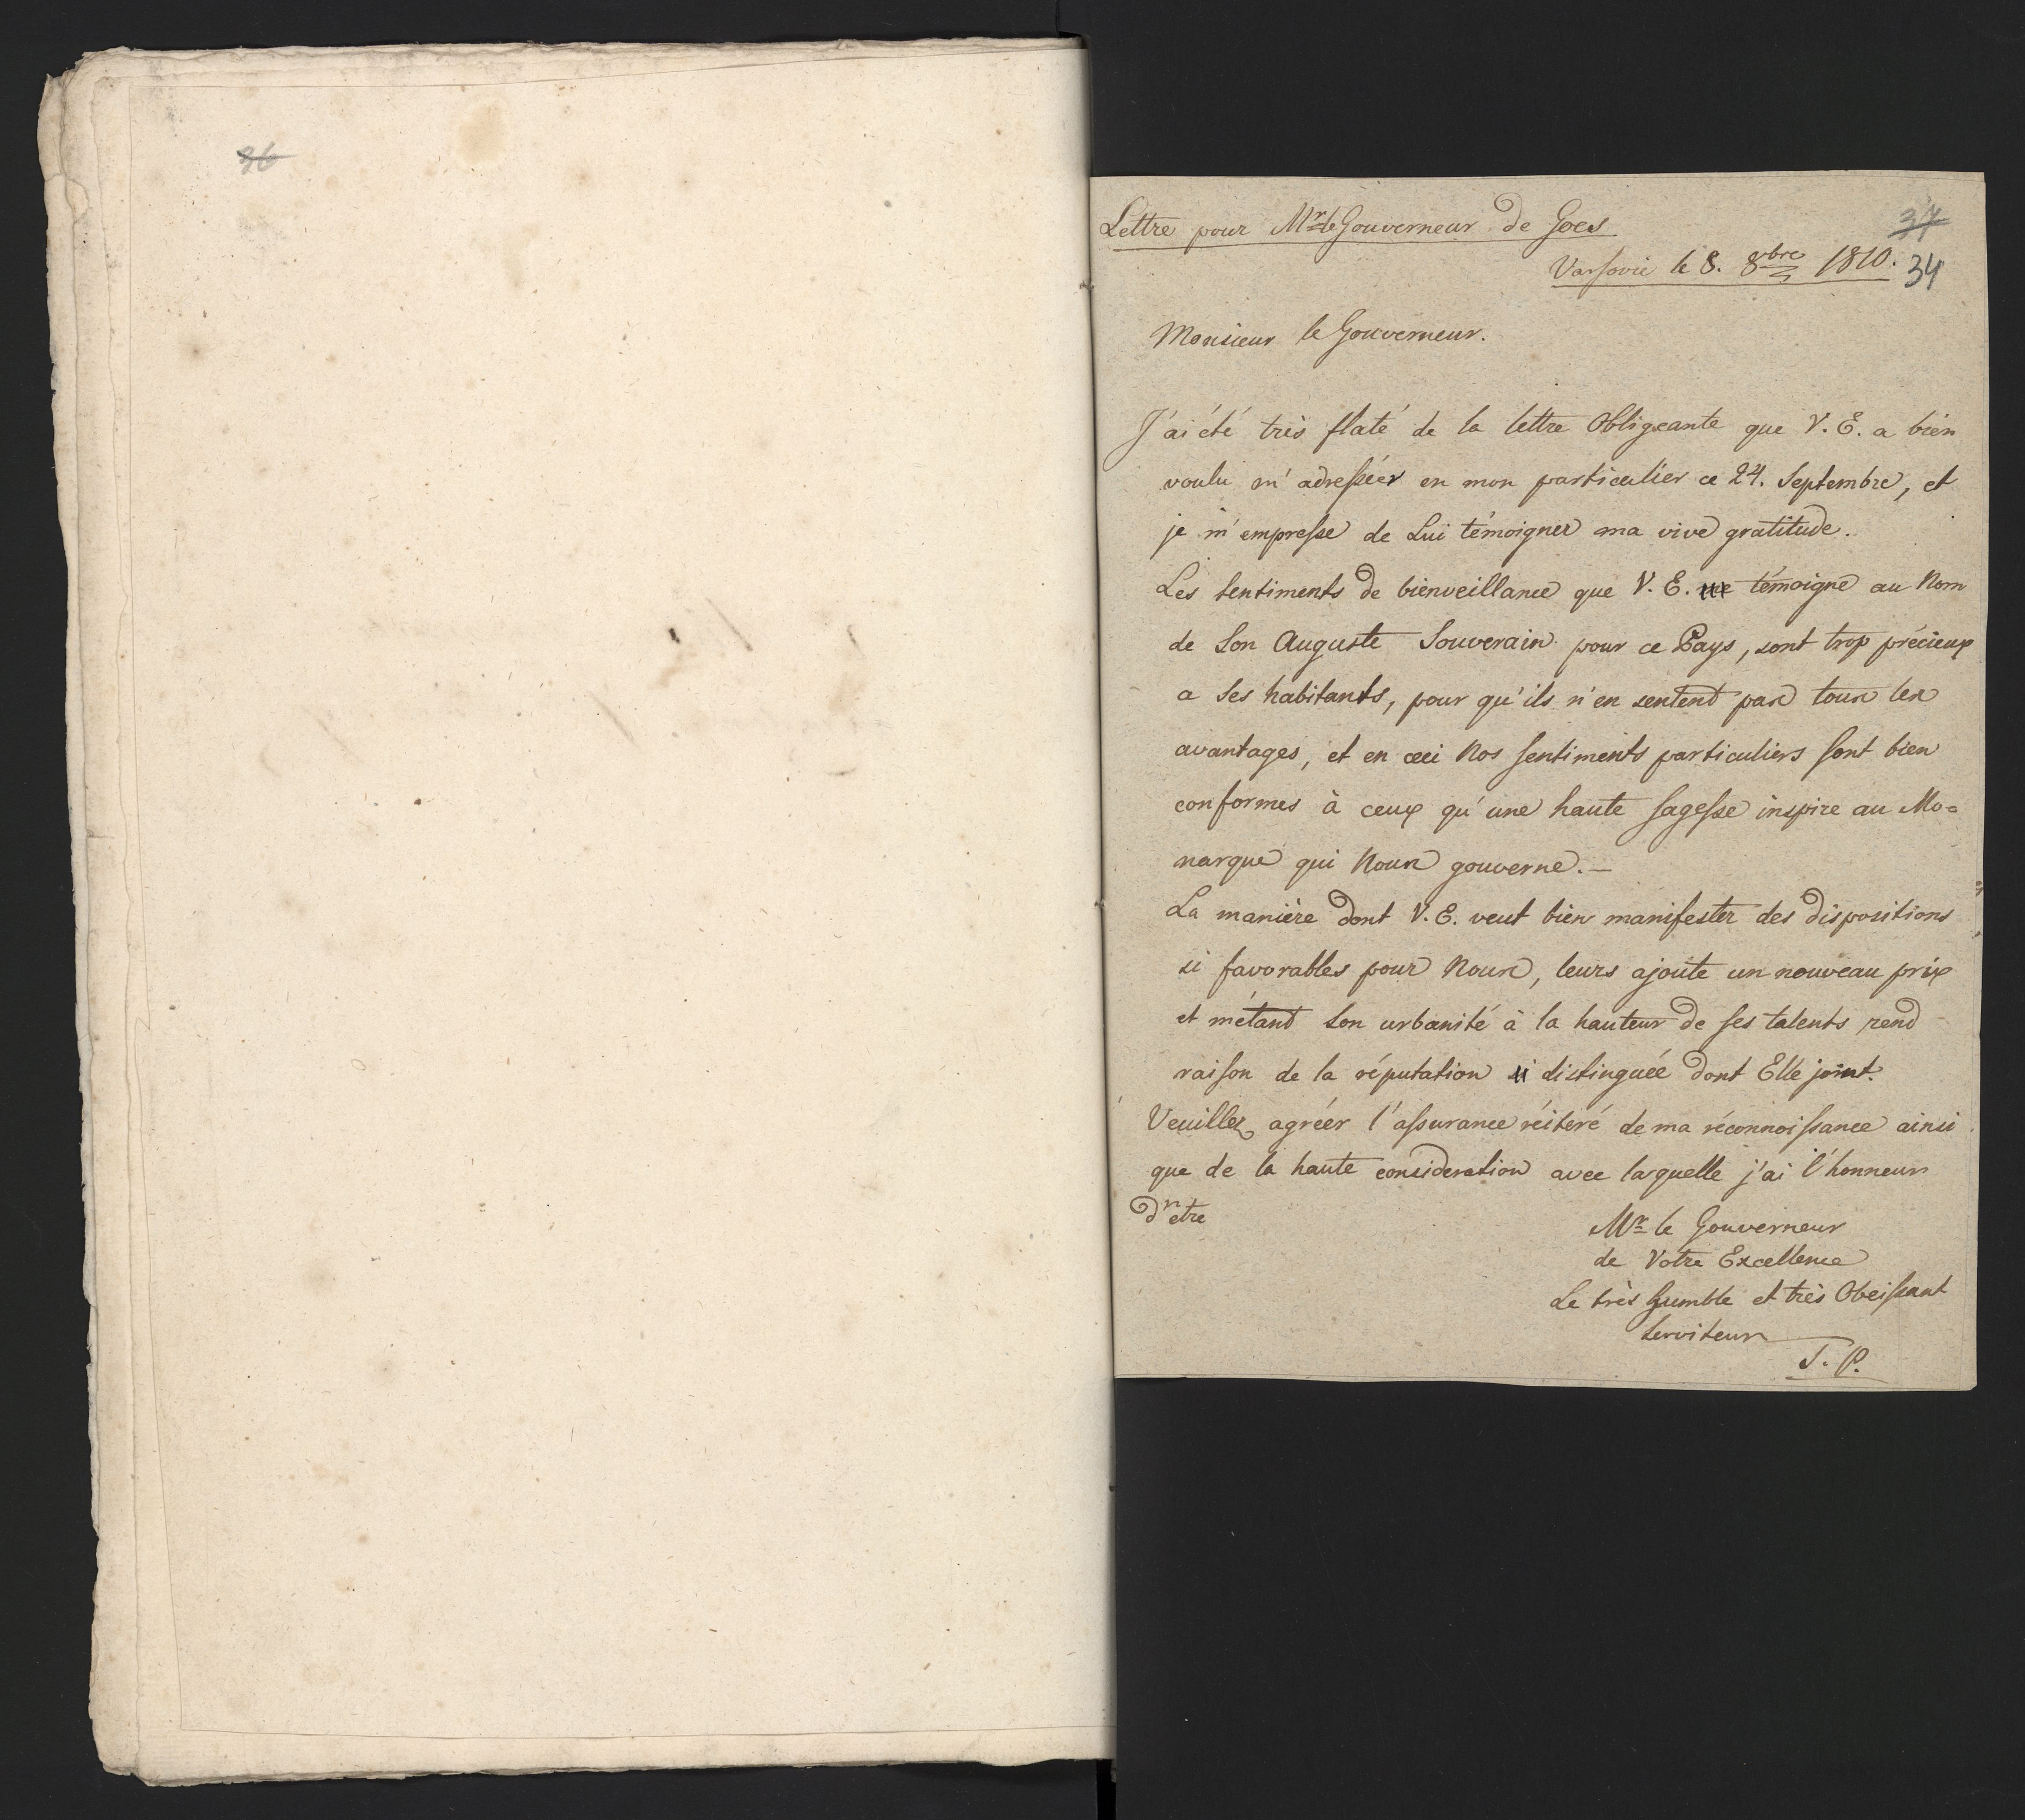 36
Lettre pour Mr le Gouverneur de Goes
37
Varsovie le 8. 8bre 1810.
34
Monsieur le Gouverneur.
J'ai été très flaté de la lettre Obligeante que V. E. a bien
voulu m'adresséer en mon particulier ce 24. Septembre, et
je m'empresse de Lui témoigner ma vive gratitude.
Les sentiments de bienveillance que V. E. me témoigne au Nom
de Son Auguste Souverain pour ce Pays, sont trop précieux
a Ses habitants, pour qu'ils n'en sentent pas tous les
avantages, et en ceci Nos sentiments particuliers sont bien
conformes à ceux qu'une haute sagesse inspire au Mo=
narque qui Nous gouverne.—
La manière dont V. E. veut bien manifester des dispositions
si favorables pour Nous, leurs ajoute un nouveau prix
et métant Son urbanité à la hauteur de ses talents rend
raison de la réputation si distinguée dont Elle jouit.
Veuillez agréer l'assurance réiteré de ma réconnoissance ainsi
que de la haute consideration avec laquelle j'ai l'honneur
d'etre
Mr le Gouverneur
de Votre Excellence
Le très humble et très Obeissant
Serviteur
S. P.